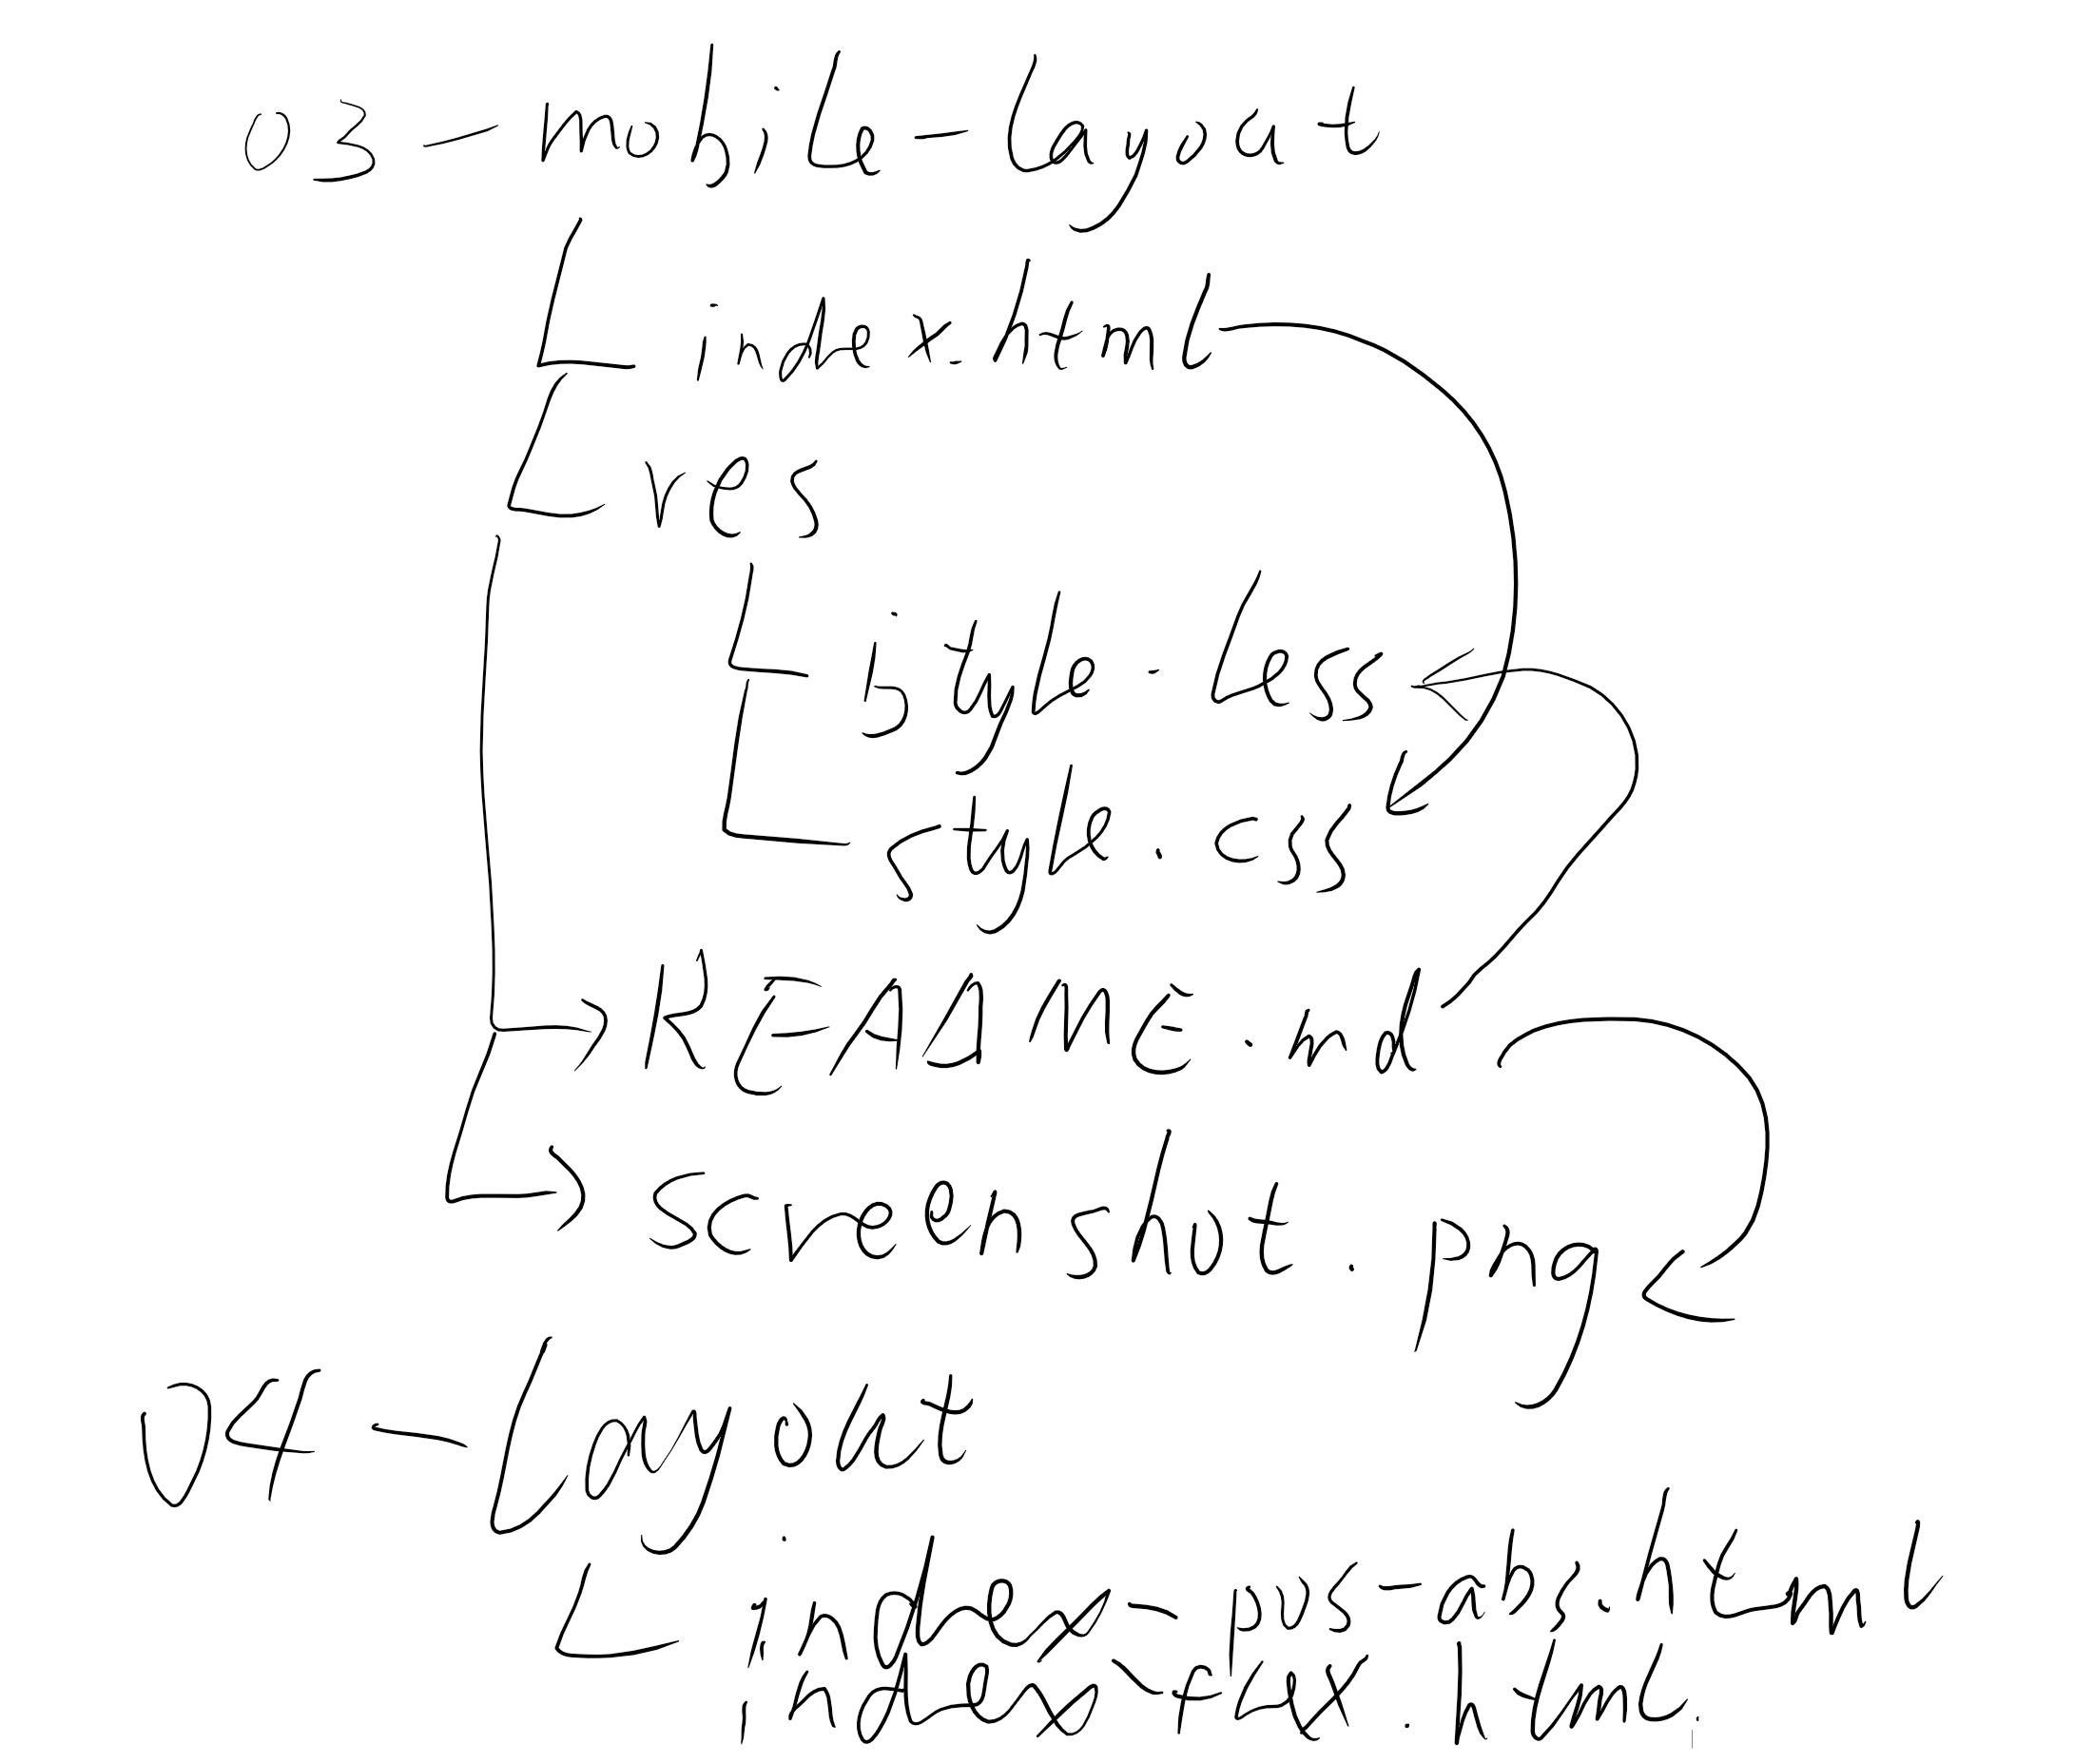 03-mobile-layout
index.html
res
style.less
style.css
README.md
screenshot.png
04-layout
index-pos-abs.html
index-flex.html